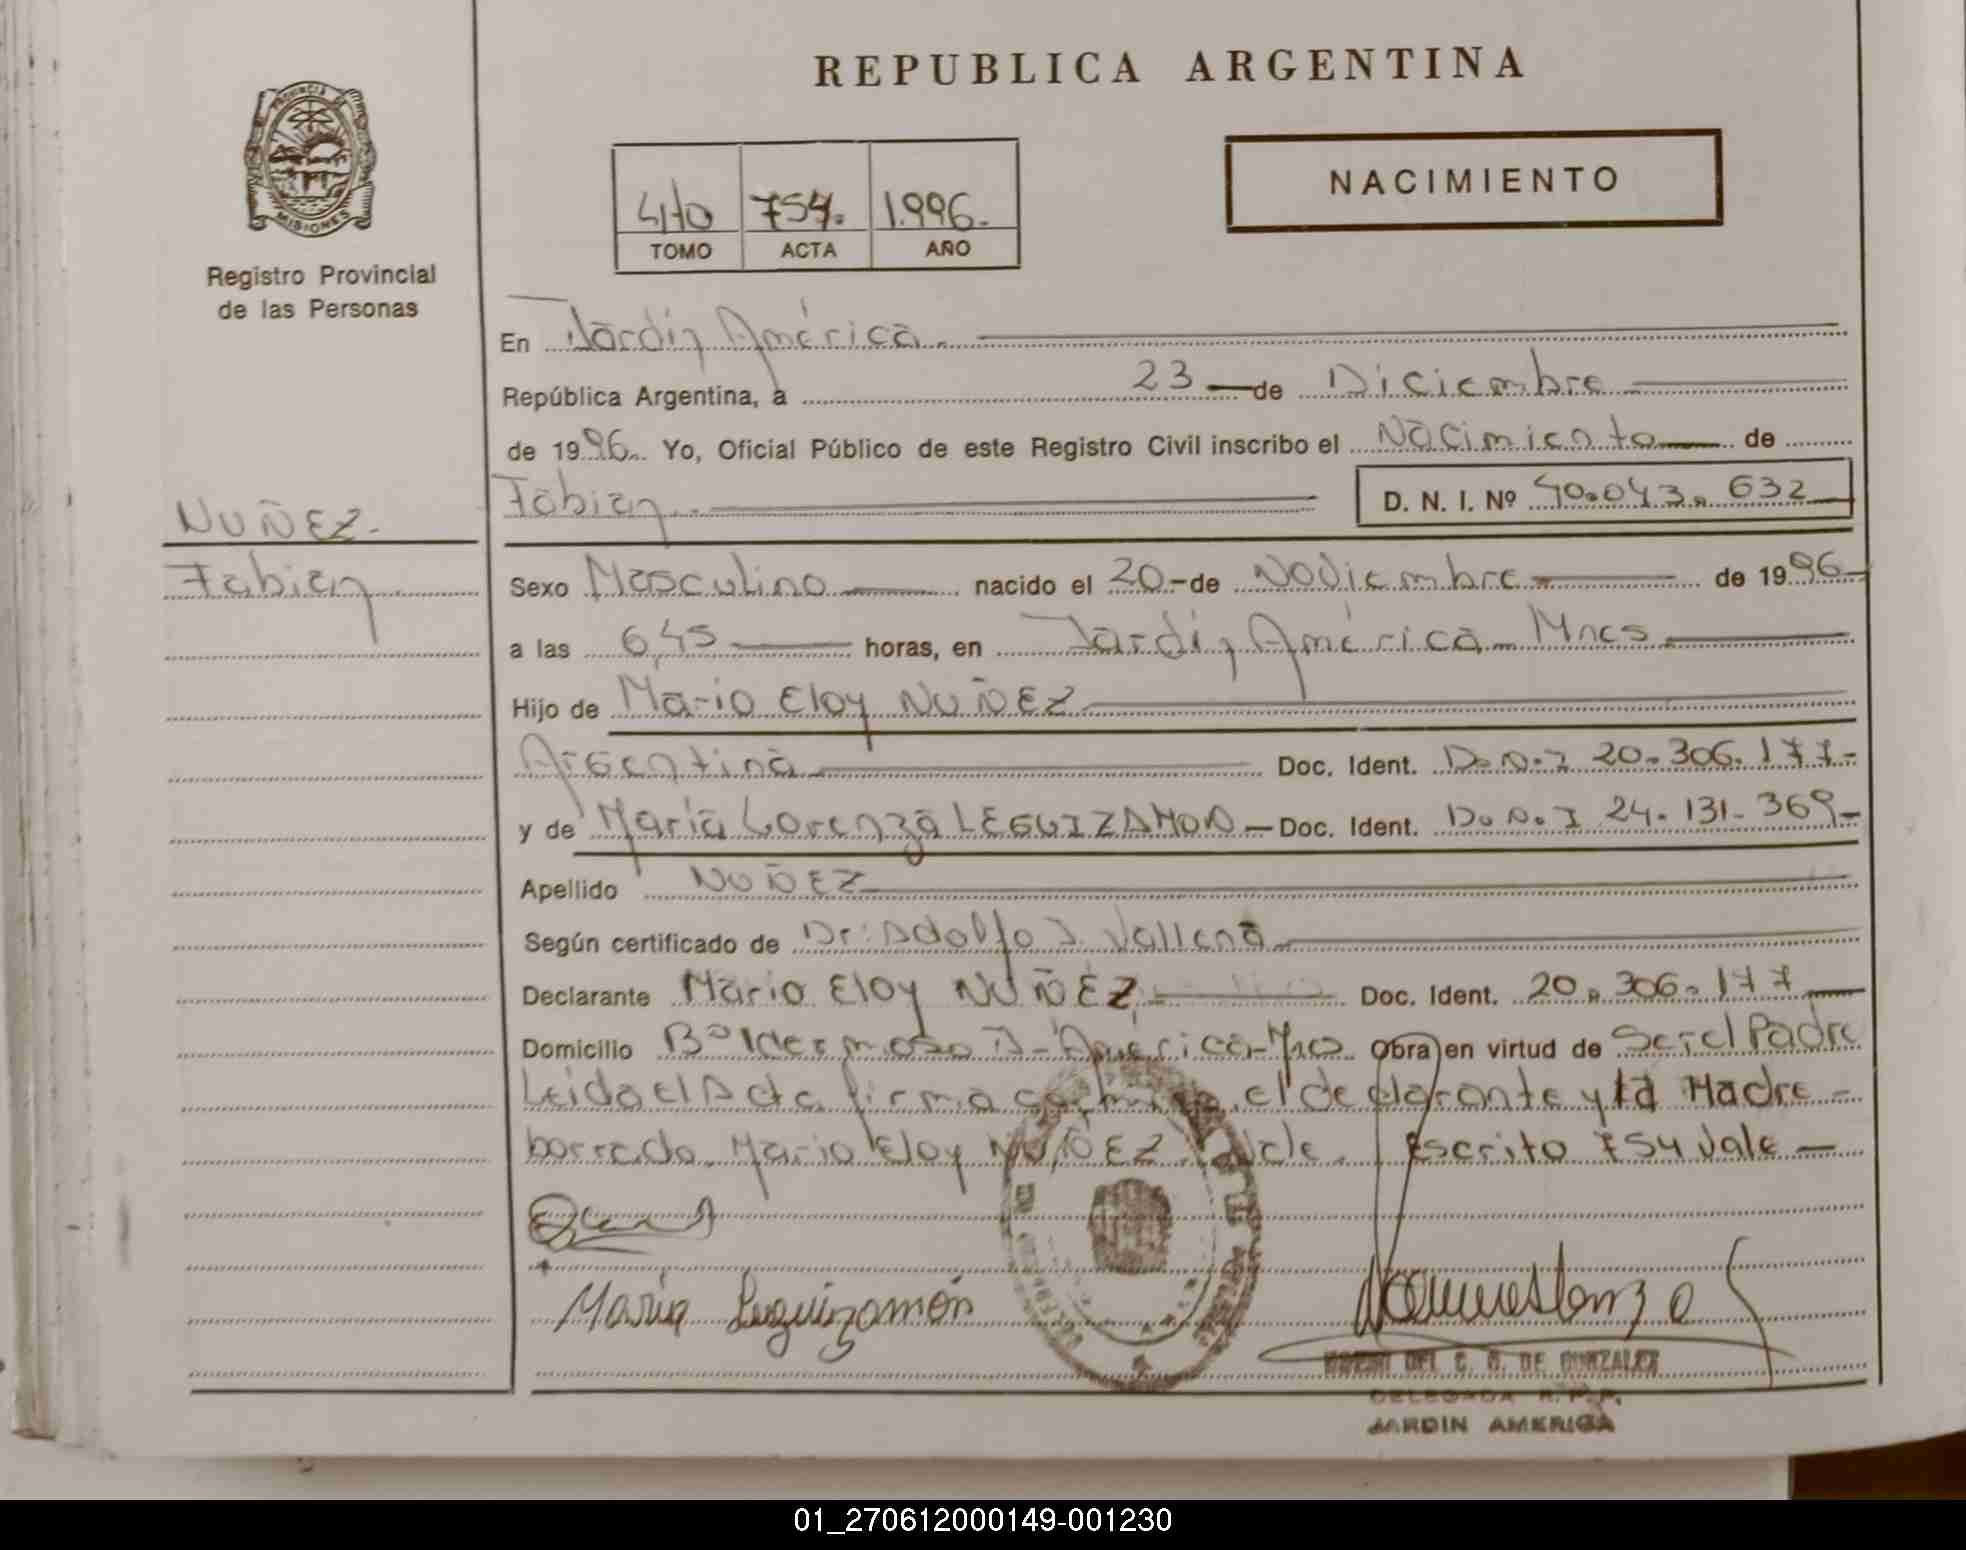 REPUBLICA ARGENTINA
PROVINCIA DE MISIONES
Registro Provincial
de las Personas
4to 754. 1.996.-
TOMO ACTA AÑO
NACIMIENTO
En Jardín América.
República Argentina, a 23 de Diciembre
de 1996. Yo, Oficial Público de este Registro Civil inscribo el Nacimiento de
Fabian D. N. I. Nº 40.043.632
NUÑEZ.
Fabian
Sexo Masculino nacido el 20-de Noviembre de 1996-
a las 6,45 horas, en Jardín América Mnes
Hijo de Mario Eloy NUÑEZ
Argentina Doc. Ident. D.N.I 20.306.177-
y de María Lorenza LEGUIZAMON Doc. Ident. D.N.I 24.131.369-
Apellido NUÑEZ
Según certificado de Dr. Adolfo J.
Declarante Mario Eloy NUÑEZ Doc. Ident. 20.306.177
Domicilio Bº Hermoso J-América-Mnes Obra en virtud de Ser el Padre
Leida el Acta firma el declarante y la Madre -
borrado Mario Eloy NUÑEZ Vale. Escrito 754 vale -
María Leguizamón
DEL C. G. DE GONZALEZ
DELEGADA R.P.P.
JARDIN AMERICA
01_270612000149-001230